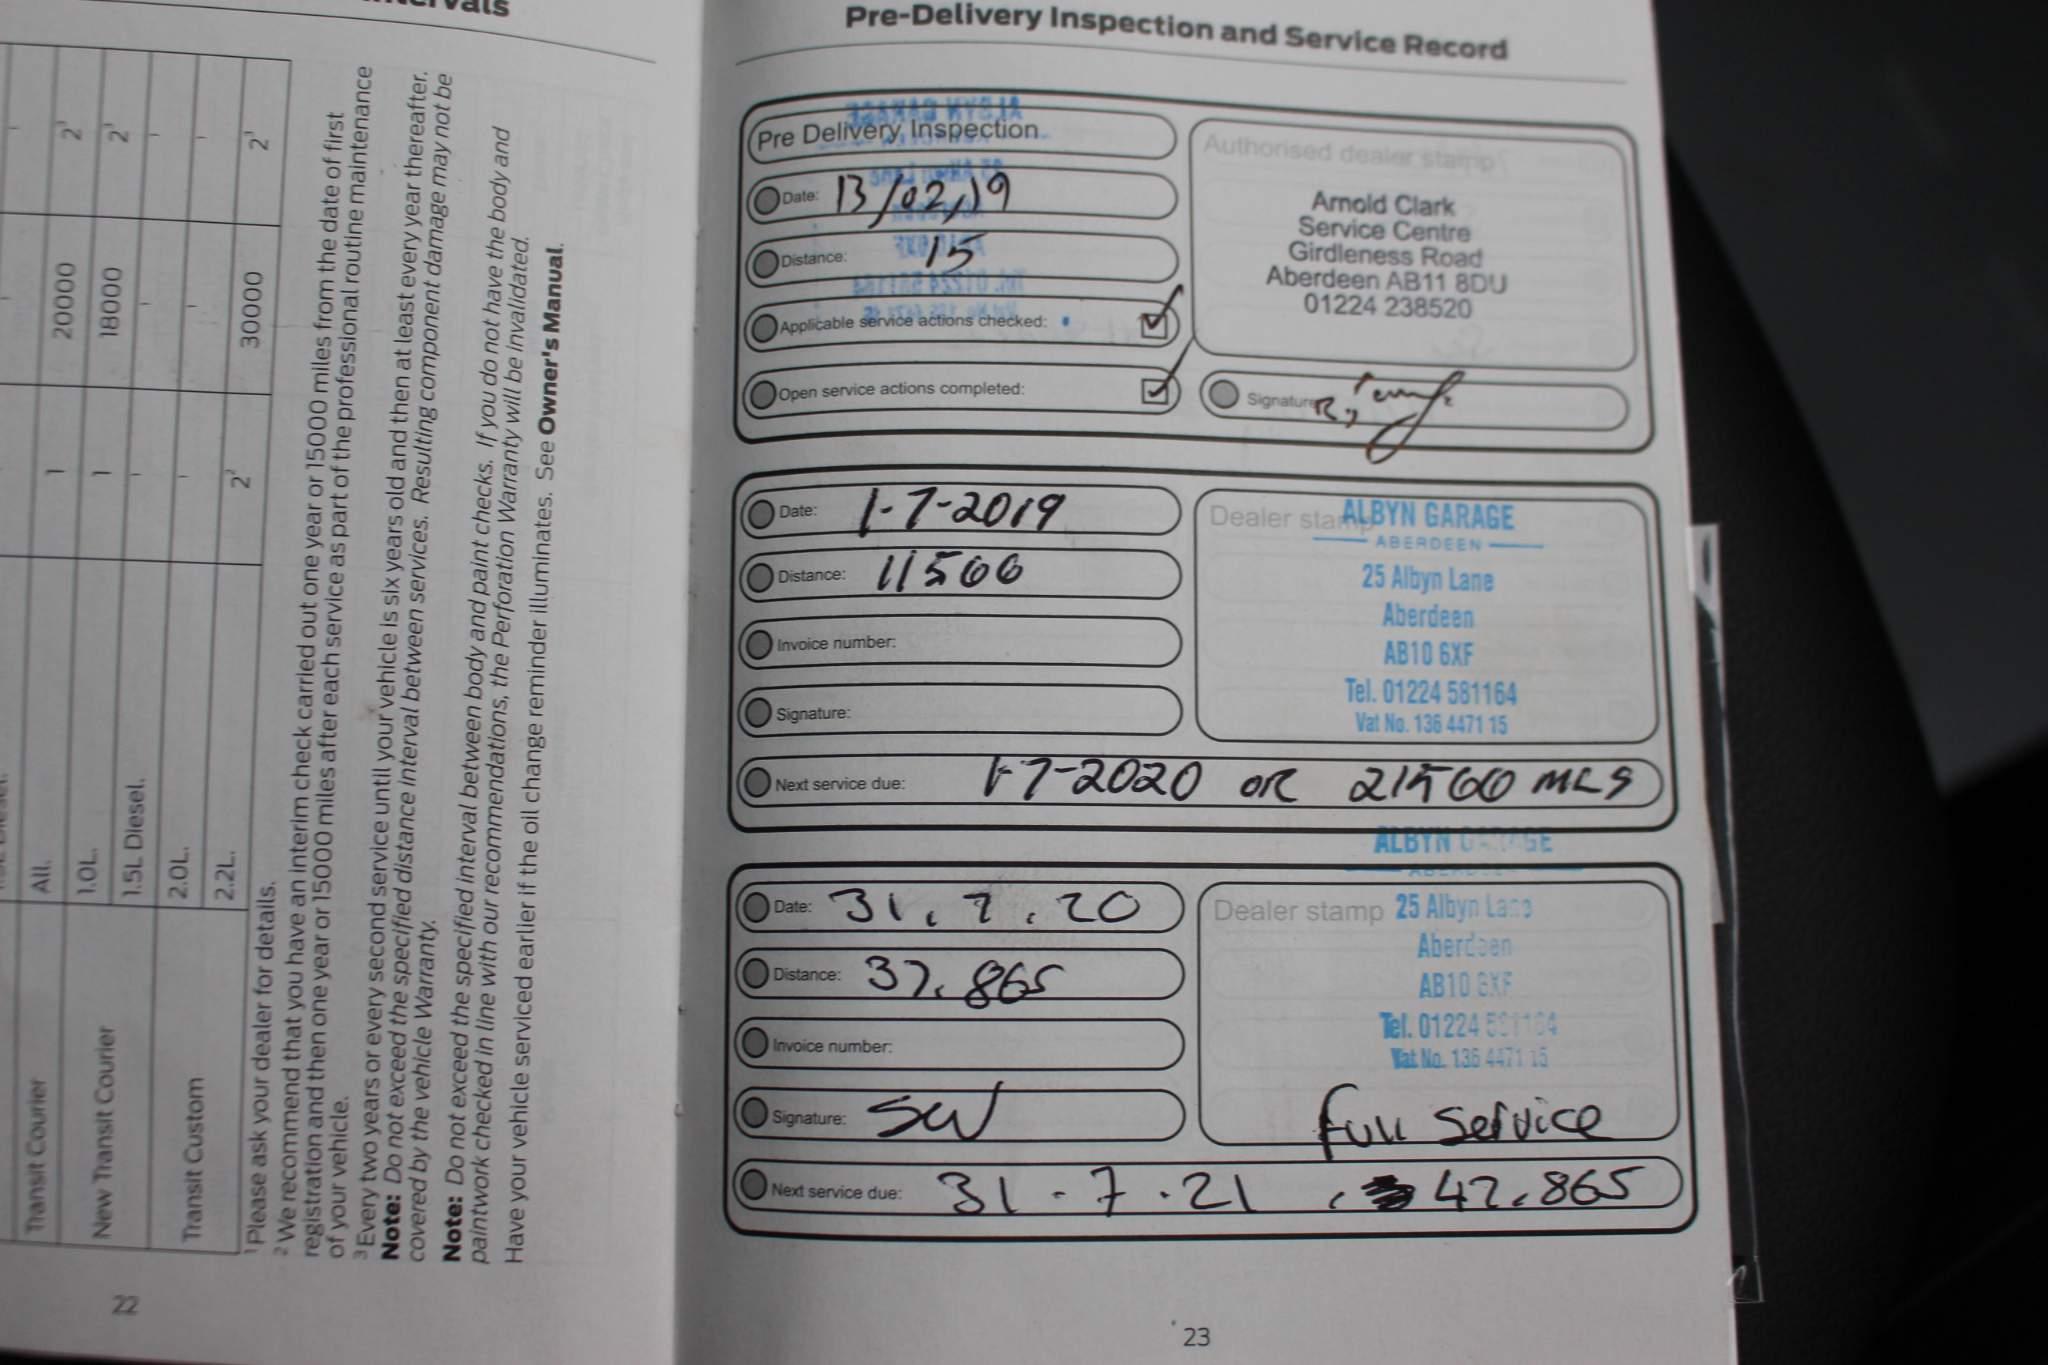 tervals
Transit Courier
All.
1
20000
2¹
New Transit Courier
1.0L.
1
18000
2¹
1.5L Diesel.
-
-
-
Transit Custom
2.0L.
-
-
-
2.2L.
2¹
30000
2¹
¹ Please ask your dealer for details.
² We recommend that you have an interim check carried out one year or 15000 miles from the date of first
registration and then one year or 15000 miles after each service as part of the professional routine maintenance
of your vehicle.
³ Every two years or every second service until your vehicle is six years old and then at least every year thereafter.
Note: Do not exceed the specified distance interval between services. Resulting component damage may not be
covered by the vehicle Warranty.
Note: Do not exceed the specified interval between body and paint checks. If you do not have the body and
paintwork checked in line with our recommendations, the Perforation Warranty will be invalidated.
Have your vehicle serviced earlier if the oil change reminder illuminates. See Owner's Manual.
22
Pre-Delivery Inspection and Service Record
Pre Delivery Inspection
Date: 13/02/19
Distance: 15
Applicable service actions checked:
Open service actions completed:
Authorised dealer stamp
Arnold Clark
Service Centre
Girdleness Road
Aberdeen AB11 8DU
01224 238520
Signature
Date: 1-7-2019
Distance: 11500
Invoice number:
Signature:
Dealer stamp
ALBYN GARAGE
ABERDEEN
25 Albyn Lane
Aberdeen
AB10 6XF
Tel. 01224 581164
Vat No. 136 4471 15
Next service due: 1-7-2020 OR 21500 MLS
ALBYN GARAGE
ABERDEEN
Date: 31.7.20
Distance: 37.865
Invoice number:
Signature: SW
Dealer stamp 25 Albyn Lane
Aberdeen
AB10 6XF
Tel. 01224 581164
Vat No. 136 4471 15
Full Service
Next service due: 31.7.21 47.865
23